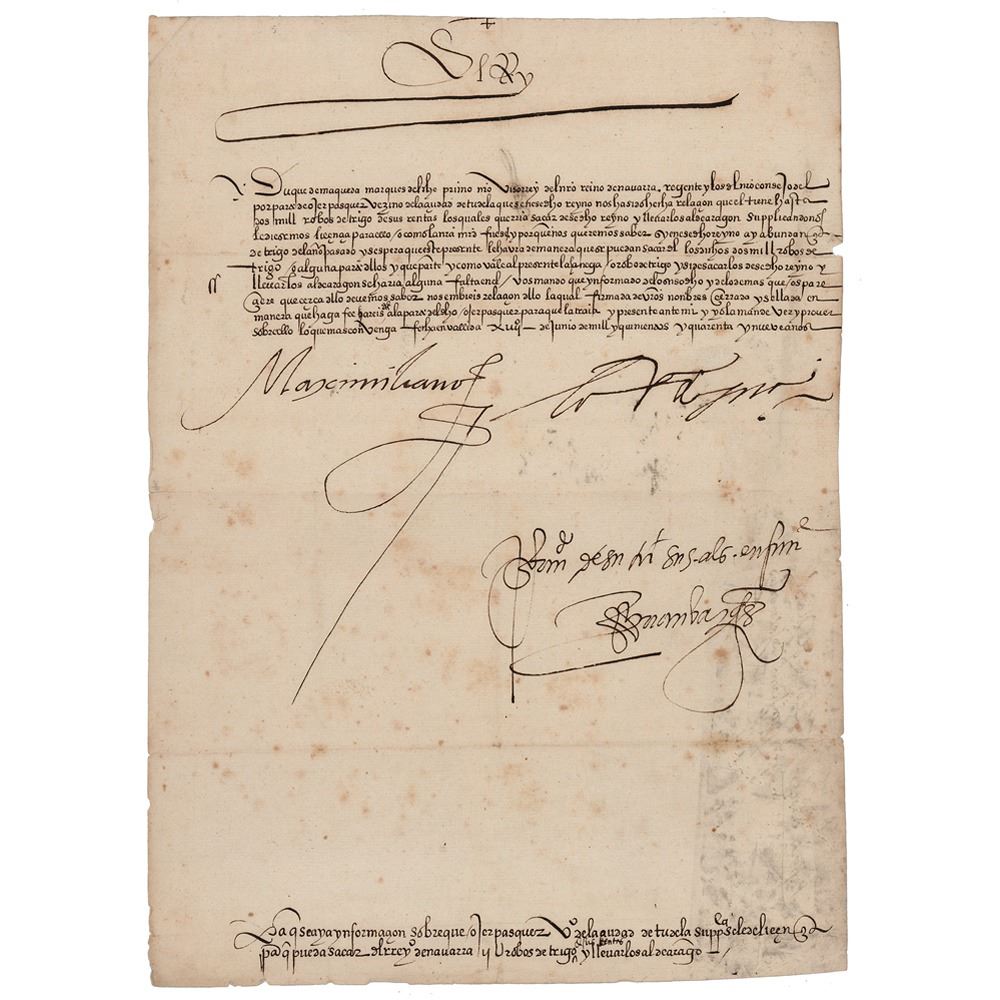 El Rey
Duque de maqueda marques delche primo nro Visorrey del nro reino de navarra, regente y los del nro consejo del
por parte de ojer pasquer vezino de la ciudad de tudela ques en ese dicho reyno nos ha sido hecha relaçion que el tiene hasta
dos mill robos de trigo de sus rentas los quales querria sacar dese dho reyno y llevarlos al de aragon supplicandonos
le diesemos liçençia para ello / o como la mi mrd fuese y porque nos queremos saber sy en ese dho reyno ay abundançia
de trigo del año pasado y se espera que este presente le havra de manera que se puedan sacar del los dichos dos mill robos de
trigo / o alguna parte dellos y que parte y como vale al presente la hanega / o robo de trigo y si de sacarlos dese dho reyno y
llevarlos al de aragon se haria alguna falta en el Vos mando que ynformado de lo suso dho y de lo demas que os pare
çiere que cerca dello devemos saber nos embieis relaçion dello la qual firmada de vros nonbres cerrada y sellada en
manera que haga fee hareis dar a la parte del dho / ojer pasquer para que la traiga y presente ante mi y yo la mande ver y proveer
sobre ello lo que mas convenga fecha en vallid a de junio de mill y quinientos y quarenta y nueve años
Maximiliano
la Reyna
Por mandado de su mt sus al. en su nre
Para que se aya ynformaçion sobre que / ojer pasquer Vo de la çiudad de tudela suppca le de liçençia
para q pueda sacar del rreyo de navarra ii U robos de trigo y llevarlos al de arago